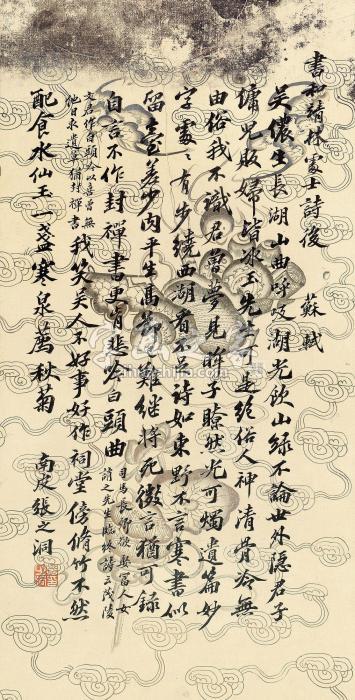 書和靖林處士詩後 蘇軾
吳儂生長湖山曲呼吸湖光飲山綠不論世外隱君子
傭兒販婦皆冰玉先生可是絕俗人神清骨冷無
由俗我不識君曾夢見眸子瞭然光可燭遺篇妙
字處々有步繞西湖看不足詩如東野不言寒書似
留臺差少肉平生高節已難繼將死微言猶可錄
自言不作封禪書更肯悲吟白頭曲
司馬長卿欲娶富人女
文君作白頭吟以
誚之先生臨終詩云茂陵
他日求遺草猶
喜曾無
封禪書
我笑吳人不好事好作祠堂傍脩竹不然
配食水仙王一盞寒泉薦秋菊 南皮張之洞